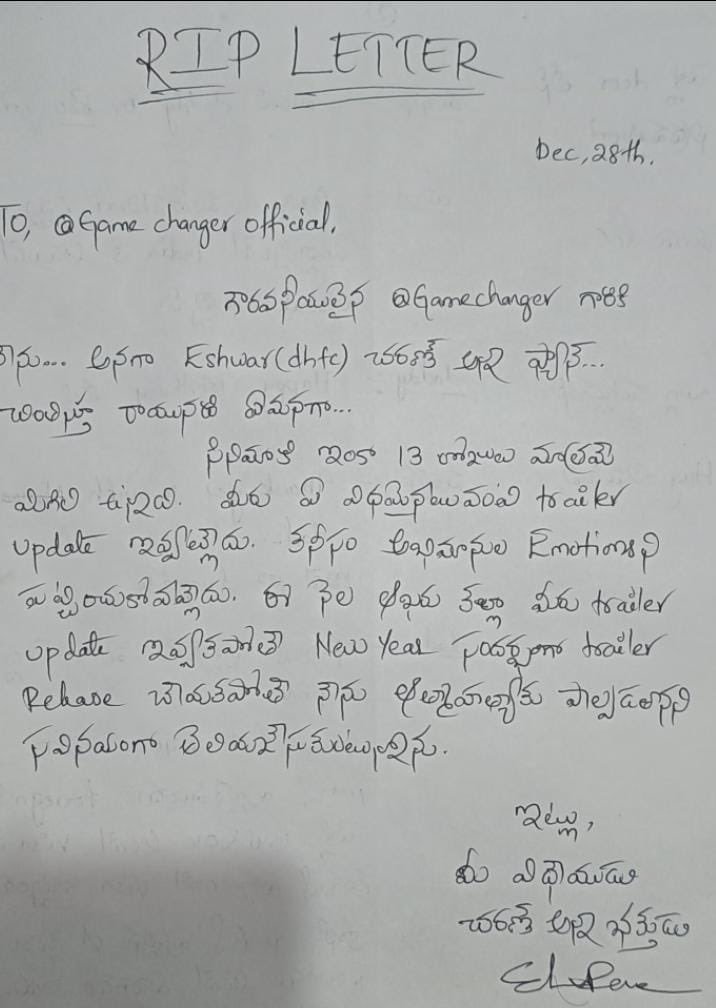 RIP LETTER
Dec, 28th.
To, @Game changer official.
గౌరవనీయులైన @Gamechanger గారికి
నేను... అనగా Eshwar(dhfc) చరణ్ అన్న ఫ్యాన్...
చింతిస్తూ రాయునది ఏమనగా...
సినిమాకి ఇంకా 13 రోజులు మాత్రమే
మిగిలి ఉన్నది. మీరు ఏ విధమైనటువంటి trailer
update ఇవ్వట్లేదు. కనీసం అభిమానుల Emotionsని
పట్టించుకోవట్లేదు. ఈ నెల ఆఖరు కల్లా మీరు trailer
update ఇవ్వకపోతే New Year సందర్భంగా trailer
Release చేయకపోతే నేను ఆత్మహత్యకు పాల్పడతానని
సవినయంగా తెలియజేసుకుంటున్నాను.
ఇట్లు,
మీ విధేయుడు
చరణ్ అన్న భక్తుడు